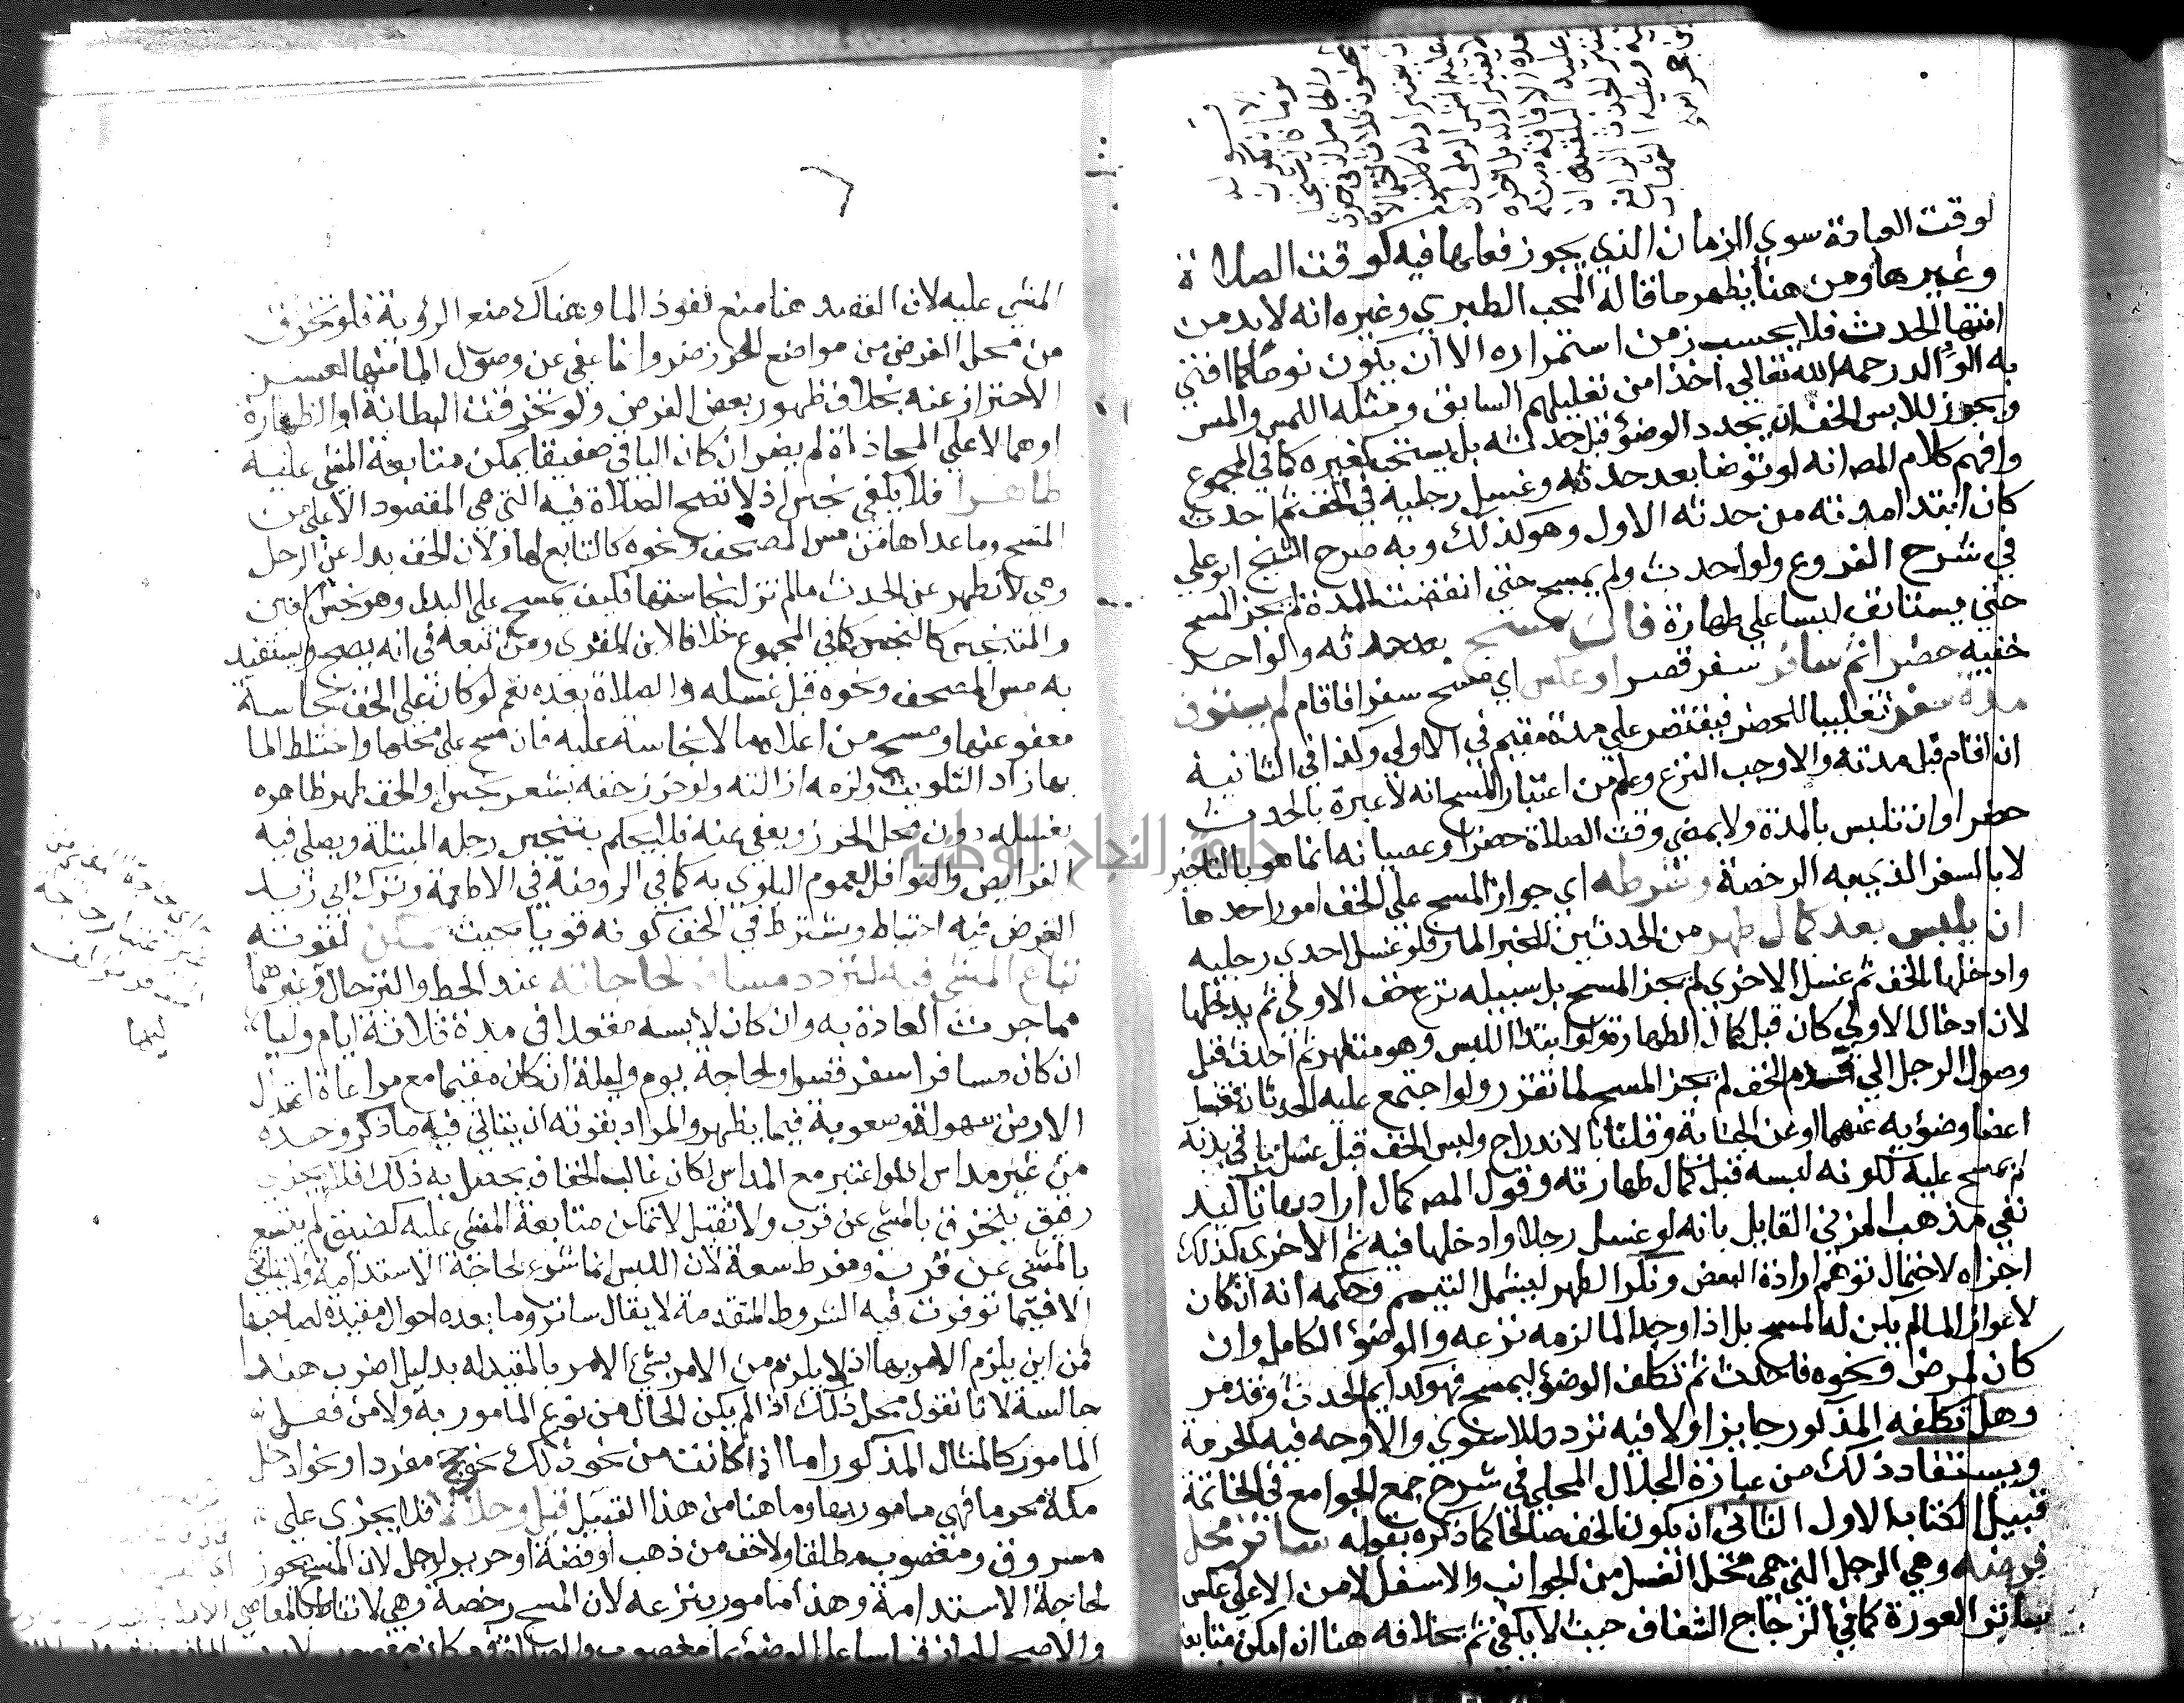 لوقت العبادة سوى الزمان الذي يجوز فعلها فيه كوقت الصلاة
وغيرها ومن هنا يظهر ما قاله المحب الطبري وغيره انه لابد من
انتهاء الحدث فلا يحسب زمن استمراره الا ان يكون نوما كما افتى
به الوالد رحمه الله تعالى اخذا من تعليلهم السابق ومثله اللمس والمس
ويجوز للابس الخف ان يجدد الوضؤ قبل حدثه بل يستحب كغيره كما في المجموع
وافهم كلام المصـ انه لو توضا بعد حدثه وغسل رجليه في الخف ثم احدث
كان ابتدا مدته من حدثه الاول وهو كذلك وبه صرح الشيخ ابو علي
في شرح الفروع ولو احدث ولم يمسح حتى انقضت المدة لم يجز المسح
حتى يستانف لبسا على طهارة فان مسح بعد حدثه ولو احد
خفيه حضرا ثم سافر سفر قصر او عكس اي مسح سفرا فاقام لم يستوف
مدة سفر تغليبا للحضر فيقتصر على مدة مقيم في الاولى وكذا في الثانية
ان اقام قبل مدته والا وجب النزع وعلم من اعتبار المسح انه لا عبرة بالحدث
حضرا وان تلبس بالمدة ولا بمضي وقت الصلاة حضرا وعصيانه انما هو بالتاخير
لا بالسفر الذي به الرخصة وشرطه اي جواز المسح على الخف امور احدها
ان يلبس بعد كمال طهر من الحدثين للخبر المار فلو غسل احدى رجليه
وادخلها الخف ثم غسل الاخرى لم يجز المسح بل سبيله نزع خف الاولى ثم يدخلها
لان ادخال الاولى كان قبل كمال الطهارة ولو ابتدا اللبس وهو متطهر ثم احدث قبل
وصول الرجل الى قدم الخف لم يجز المسح لما تقرر ولو اجتمع عليه الحدثان فغسل
اعضا وضوئه عنهما او عن الجنابة وقلنا بالاندراج ولبس الخف قبل غسل باقي بدنه
لم يمسح عليه لكونه لبسه قبل كمال طهارته وقول المصـ كمال اراد بها تاكيد
نفي مذهب المزني القايل بانه لو غسل رجلا وادخلها فيه ثم الاخرى كذلك
اجزاه لاحتمال توهم ارادة البعض ونكر الطهر ليشمل التيمم وحكمه انه ان كان
لاعواز الما لم يكن له المسح بل اذا وجد الما لزمه نزعه والوضؤ الكامل وان
كان لمرض ونحوه فاحدث ثم تكلف الوضؤ ليمسح فهو كدايم الحدث وقد مر
وهل تكلفه المذكور جايز اولا فيه تردد للاسنوي والاوجه فيه الحرمة
ويستفاد ذلك من عبارة الجلال المحلي في شرح جمع الجوامع في الخاتمة
قبيل الكتاب الاول الثاني ان يكون الخف صالحا كما ذكره بقوله ساتر محل
فرضه وهي الرجل التي هي محل الغسل من الجوانب والاسفل لا من الاعلى عكس
ساتر العورة كما في الزجاج الشفاف حيث لا يكفي ثم بخلافه هنا ان امكن متابعة
المشي عليه لان القصد هنا منع نفوذ الما وهناك منع الرؤية فلو تخرق
من محل الفرض من مواضع الخرز ضر وانما عفي عن وصول الما منها لعسر
الاحتراز عنه بخلاف ظهور بعض الفرض ولو تخرقت البطانة او الظهارة
او هما لا على المحاذاة لم يضر ان كان الباقي صفيقا يمكن متابعة المشي عليه
طاهرا فلا يكفي نجس اذ لا تصح الصلاة فيه التي هي المقصود الاعلى من
المسح وما عداها من مس المصحف ونحوه كالتابع لها ولان الخف بدل عن الرجل
وهي لا تطهر عن الحدث مالم تزل نجاستها فكيف يمسح على البدل وهو نجس العين
والمتنجس كالنجس كما في المجموع خلافا لابن المقري ومن تبعه في انه يصح ويستفيد
به مس المصحف ونحوه قبل غسله والصلاة بعده نعم لو كان على الخف نجاسة
معفو عنها ومسح من اعلاه ما لا نجاسة عليه فان مسح على محلها واختلط الما
بها زاد التلويث ولزمه ازالته ولو خرز خفه بشعر نجس والخف طهر ظاهره
بغسله دون محل الخرز ويعفى عنه فلا يحكم بتنجس رجله المبتلة ويصلي فيه
الفرايض والنوافل لعموم البلوى به كما في الروضة في الاطعمة وترك ابي زيد
الفرض فيه احتياط ويشترط في الخف كونه قويا بحيث يمكن لقوته
تباع المشي فيه لتردد مسافر لحاجاته عند الحط والترحال وغيرهما
مما جرت العادة به وان كان لابسه مقعدا في مدة ثلاثة ايام ولياليها
ان كان مسافرا سفر قصر او لحاجة يوم وليلة ان كان مقيما مع مراعاة اعتدال
الارض سهولة وصعوبة فيما يظهر والمراد بقوته ان يتاتى فيه ما ذكر وحده
من غير مداس اذ لو اعتبر مع المداس لكان غالب الخفاف يحصل به ذلك فلا يجزي
رقيق يتخرق بالمشي عن قرب ولا ثقيل لا تمكن متابعة المشي عليه كضيق لم يتسع
بالمشي عن قرب ومفرط سعة لان اللبس انما شرع لحاجة الاستدامة ولا يتاتى
الا فيما توفرت فيه الشروط المتقدمة لا يقال ساتر وما بعده احوال مقيدة لصاحبها
فمن اين يلزم الامر بها اذ لا يلزم من الامر بشئ الامر بالمقيد له بدليل اضرب هندا
جالسة لانا نقول محل ذلك اذا لم يكن الحال من نوع المامور به ولا من فعل
المامور كالمثال المذكور اما اذا كانت من نحو ذلك نحو حج مفردا ونحو ادخل
مكة محرما فهي مامور بها وما هنا من هذا القبيل قيل وحلالا فلا يجزي على
مسروق ومغصوب مطلقا ولا خف من ذهب او فضة او حرير لرجل لان المسح يجوز
لحاجة الاستدامة وهذا مامور بنزعه لان المسح رخصة وهي لا تناط بالمعاصي
والاصح
جامعة النجاح الوطنية